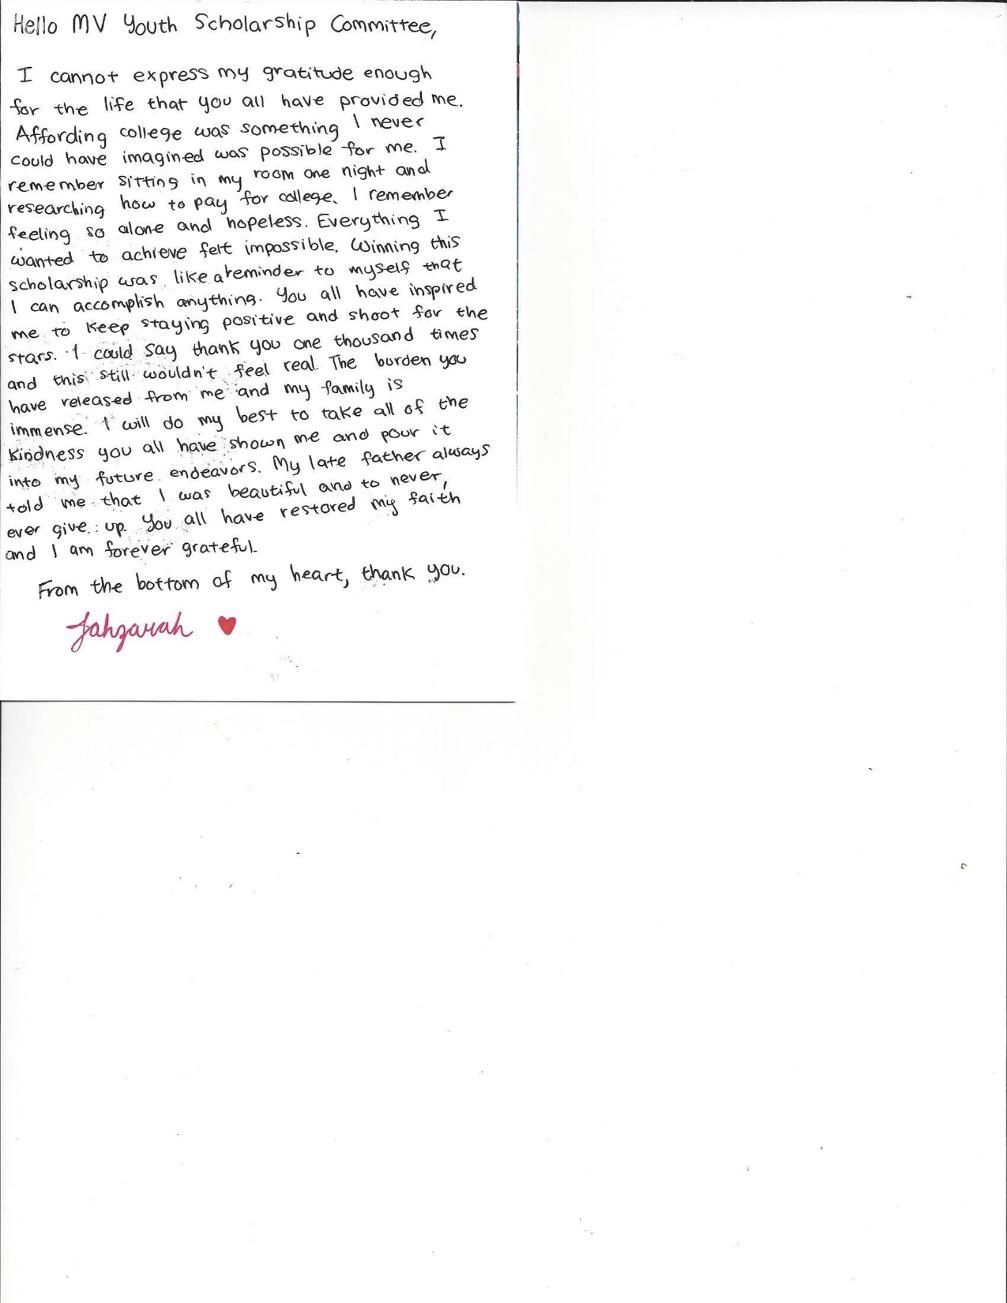 Hello MV Youth Scholarship Committee,
I cannot express my gratitude enough
for the life that you all have provided me.
Affording college was something I never
could have imagined was possible for me. I
remember sitting in my room one night and
researching how to pay for college. I remember
feeling so alone and hopeless. Everything I
wanted to achieve felt impossible. Winning this
scholarship was like a reminder to myself that
I can accomplish anything. You all have inspired
me to keep staying positive and shoot for the
stars. I could say thank you one thousand times
and this still wouldn't feel real. The burden you
have released from me and my family is
immense. I will do my best to take all of the
kindness you all have shown me and pour it
into my future endeavors. My late father always
told me that I was beautiful and to never,
ever give up. You all have restored my faith
and I am forever grateful.
From the bottom of my heart, thank you.
Jahzarah ♥